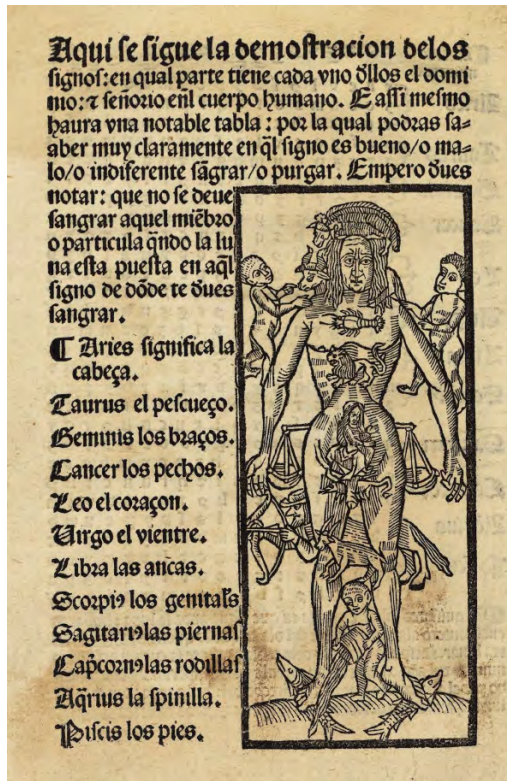 Aqui se sigue la demostracion delos
signos: en qual parte tiene cada vno d̃llos el domi
nio: ⁊ señorio eñl cuerpo humano. E assi mesmo
haura vna notable tabla: por la qual podras sa-
aber muy claramente en q̃l signo es bueno/o ma-
lo/o indiferente sãgrar/o purgar. Empero d̃ues
notar: que no se deue
sangrar aquel miẽbro
o particula q̃ndo la lu
na esta puesta en aq̃l
signo de dõde te d̃ues
sangrar.
¶ Aries significa la
cabeça.
Taurus el pescueço.
Geminis los braços.
Cancer los pechos.
Leo el coraçon.
Uirgo el vientre.
Libra las ancas.
Scorpiꝰ los genitales
Sagitariꝰ las piernas
Cap̃cornꝰ las rodillas
Aq̃rius la spinilla.
Piscis los pies.